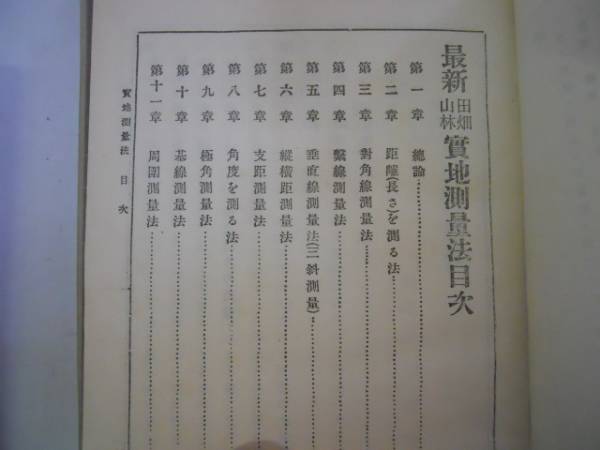 最新田畑山林實地測量法目次
第一章 總論
第二章 距離(長さ)を測る法
第三章 對角線測量法
第四章 繫線測量法
第五章 垂直線測量法(三斜測量)
第六章 縱橫距測量法
第七章 支距測量法
第八章 角度を測る法
第九章 極角測量法
第十章 基線測量法
第十一章 周圍測量法
實地測量法 目次